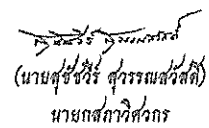 (นายสุชัชวีร์ สุวรรณสวัสดิ์)
นายกสภาวิศวกร